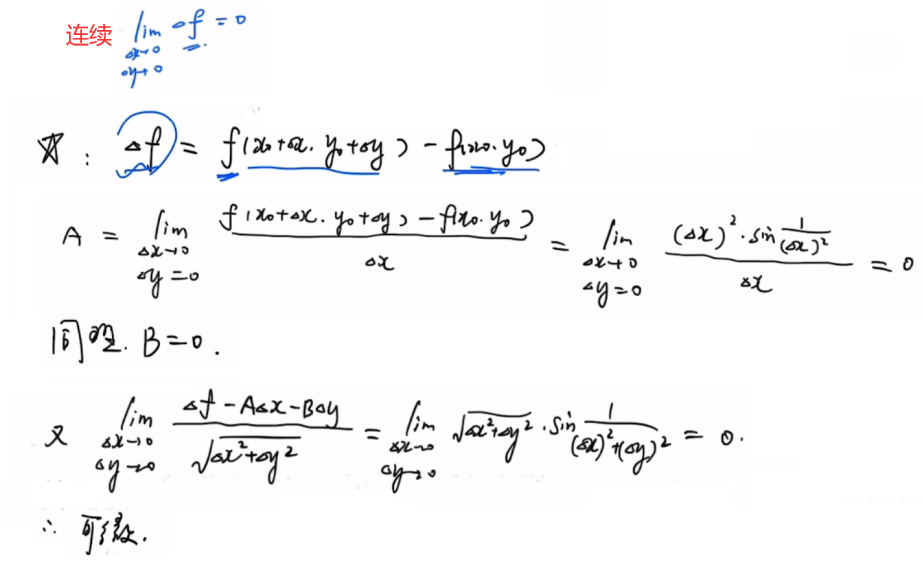 连续 lim Δx→0 Δy→0 Δf = 0
☆: Δf = f(x₀+Δx, y₀+Δy) - f(x₀, y₀)
A = lim Δx→0 Δy=0 (f(x₀+Δx, y₀+Δy) - f(x₀, y₀))/Δx = lim Δx→0 Δy=0 ((Δx)²·sin 1/(Δx)²)/Δx = 0
同理. B=0.
又 lim Δx→0 Δy→0 (Δf - AΔx - BΔy)/√(Δx²+Δy²) = lim Δx→0 Δy→0 √(Δx²+Δy²)·sin 1/((Δx)²+(Δy)²) = 0.
∴ 可微.